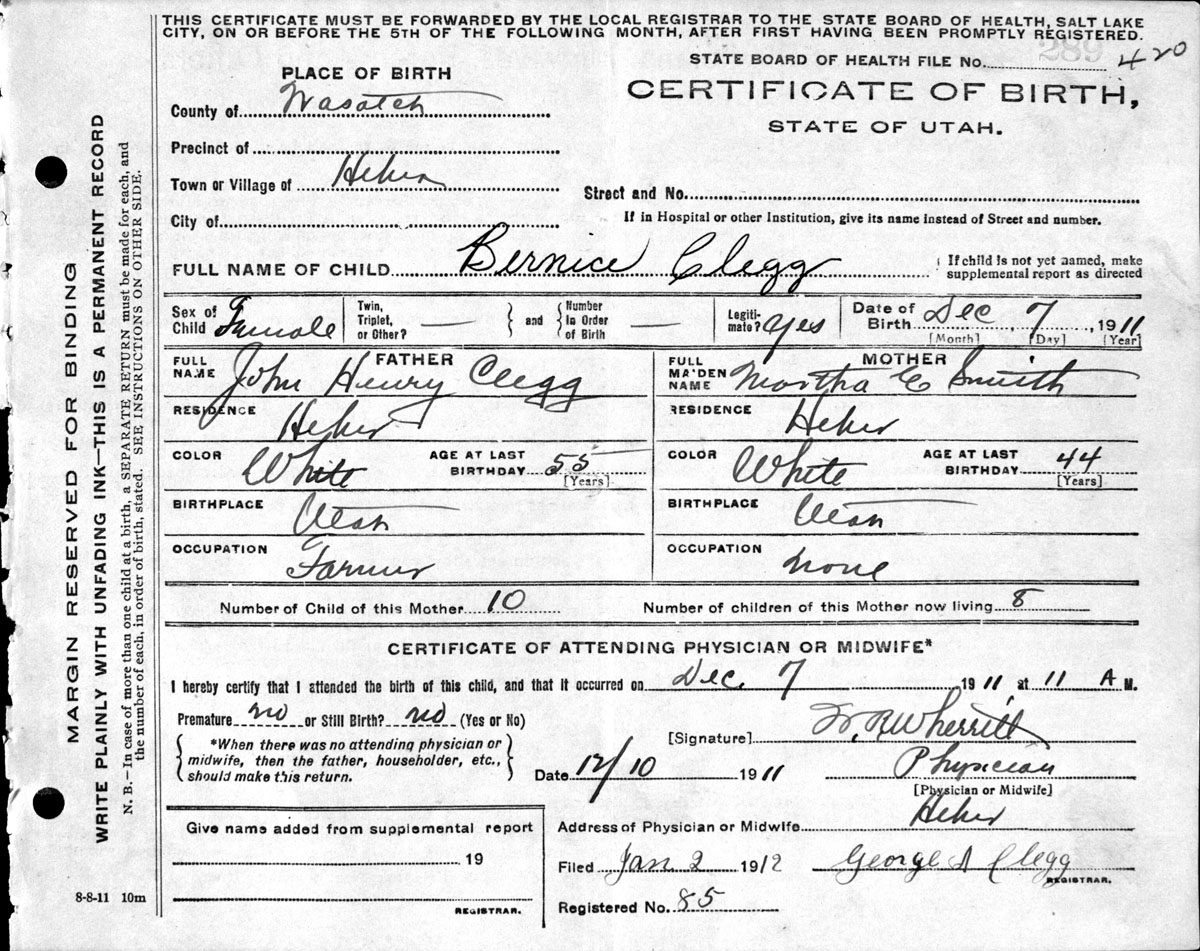 THIS CERTIFICATE MUST BE FORWARDED BY THE LOCAL REGISTRAR TO THE STATE BOARD OF HEALTH, SALT LAKE
CITY, ON OR BEFORE THE 5TH OF THE FOLLOWING MONTH, AFTER FIRST HAVING BEEN PROMPTLY REGISTERED.
289
STATE BOARD OF HEALTH FILE No. 420
PLACE OF BIRTH
CERTIFICATE OF BIRTH,
STATE OF UTAH.
County of Wasatch
Precinct of
Town or Village of Heber
Street and No.
City of
If in Hospital or other Institution, give its name instead of Street and number.
FULL NAME OF CHILD Bernice Clegg
If child is not yet named, make
supplemental report as directed
Sex of Child Female
Twin, Triplet, or Other? —
and
Number in Order of Birth —
Legitimate? yes
Date of Birth Dec 7, 1911
[Month] [Day] [Year]
FATHER
FULL NAME John Henry Clegg
MOTHER
FULL MAIDEN NAME Martha E Smith
RESIDENCE Heber
RESIDENCE Heber
COLOR White
AGE AT LAST BIRTHDAY 55
[Years]
COLOR White
AGE AT LAST BIRTHDAY 44
[Years]
BIRTHPLACE Utah
BIRTHPLACE Utah
OCCUPATION Farmer
OCCUPATION None
Number of Child of this Mother 10
Number of children of this Mother now living 8
CERTIFICATE OF ATTENDING PHYSICIAN OR MIDWIFE*
I hereby certify that I attended the birth of this child, and that it occurred on Dec. 7 1911, at 11 A M.
Premature no or Still Birth? no (Yes or No)
*When there was no attending physician or
midwife, then the father, householder, etc.,
should make this return.
[Signature] W. R. Wherritt
Date 12/10 1911
Physician
[Physician or Midwife]
Address of Physician or Midwife Heber
Give name added from supplemental report
19
REGISTRAR.
Filed Jan 2 1912 George A Clegg
REGISTRAR.
Registered No. 85
8-8-11 10m
MARGIN RESERVED FOR BINDING
WRITE PLAINLY WITH UNFADING INK—THIS IS A PERMANENT RECORD
N. B.—In case of more than one child at a birth, a SEPARATE RETURN must be made for each, and
the number of each, in order of birth, stated. SEE INSTRUCTIONS ON OTHER SIDE.